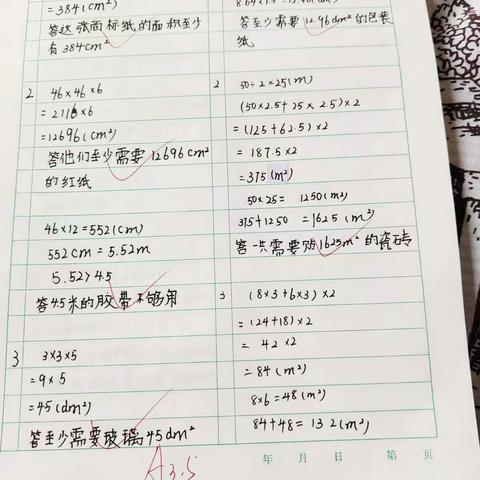 =384(cm²)
答这张商标纸的面积至少
有384cm²
2 46×46×6
=2116×6
=12696(cm²)
答他们至少需要12696cm²
的红纸
46×12=552(cm)
552cm=5.52m
5.52>4.5
答4.5米的胶带不够用
3 3×3×5
=9×5
=45(dm²)
答至少需要玻璃45dm²
答至少需要12.96dm²的包装
纸
2 50÷2=25(m)
(50×2.5+25×2.5)×2
=(125+62.5)×2
=187.5×2
=375(m²)
50×25=1250(m²)
375+1250=1625(m²)
答一共需要贴1625m²的瓷砖
3 (8×3+6×3)×2
=(24+18)×2
=42×2
=84(m²)
8×6=48(m²)
84+48=132(m²)
年 月 日 第 页
A 3.5